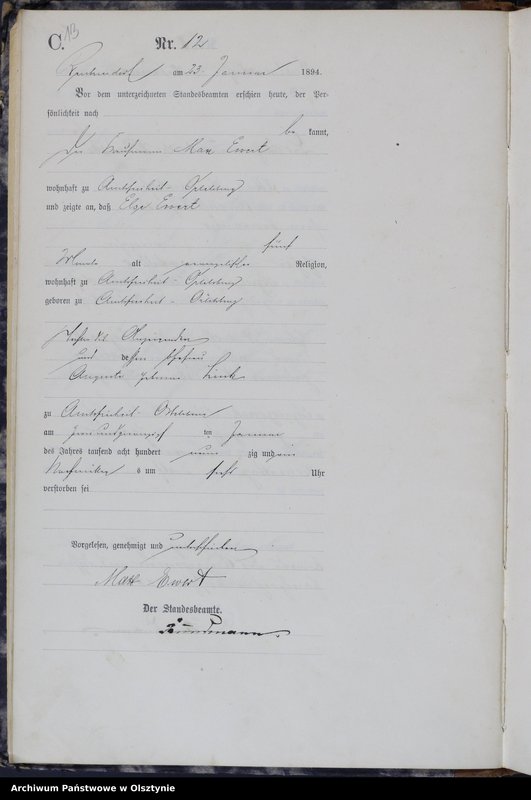 C. 13
Nr. 12
am 23 Januar 1894.
Vor dem unterzeichneten Standesbeamten erschien heute, der Per-
sönlichkeit nach
be kannt,
Der Kaufmann Max Ewert
wohnhaft zu Amtsfreiheit-
und zeigte an, daß Else Ewert
fünf
Monate alt evangelischer Religion,
wohnhaft zu Amtsfreiheit-
geboren zu Amtsfreiheit-
Tochter des Anzeigenden
und dessen Ehefrau
Auguste geborene Link
zu Amtsfreiheit
am zweiundzwanzigsten Januar
des Jahres tausend acht hundert neun zig und
Nachmittags um sechs Uhr
verstorben sei
Vorgelesen, genehmigt und unterschrieben
Max Ewert
Der Standesbeamte.
Archiwum Państwowe w Olsztynie